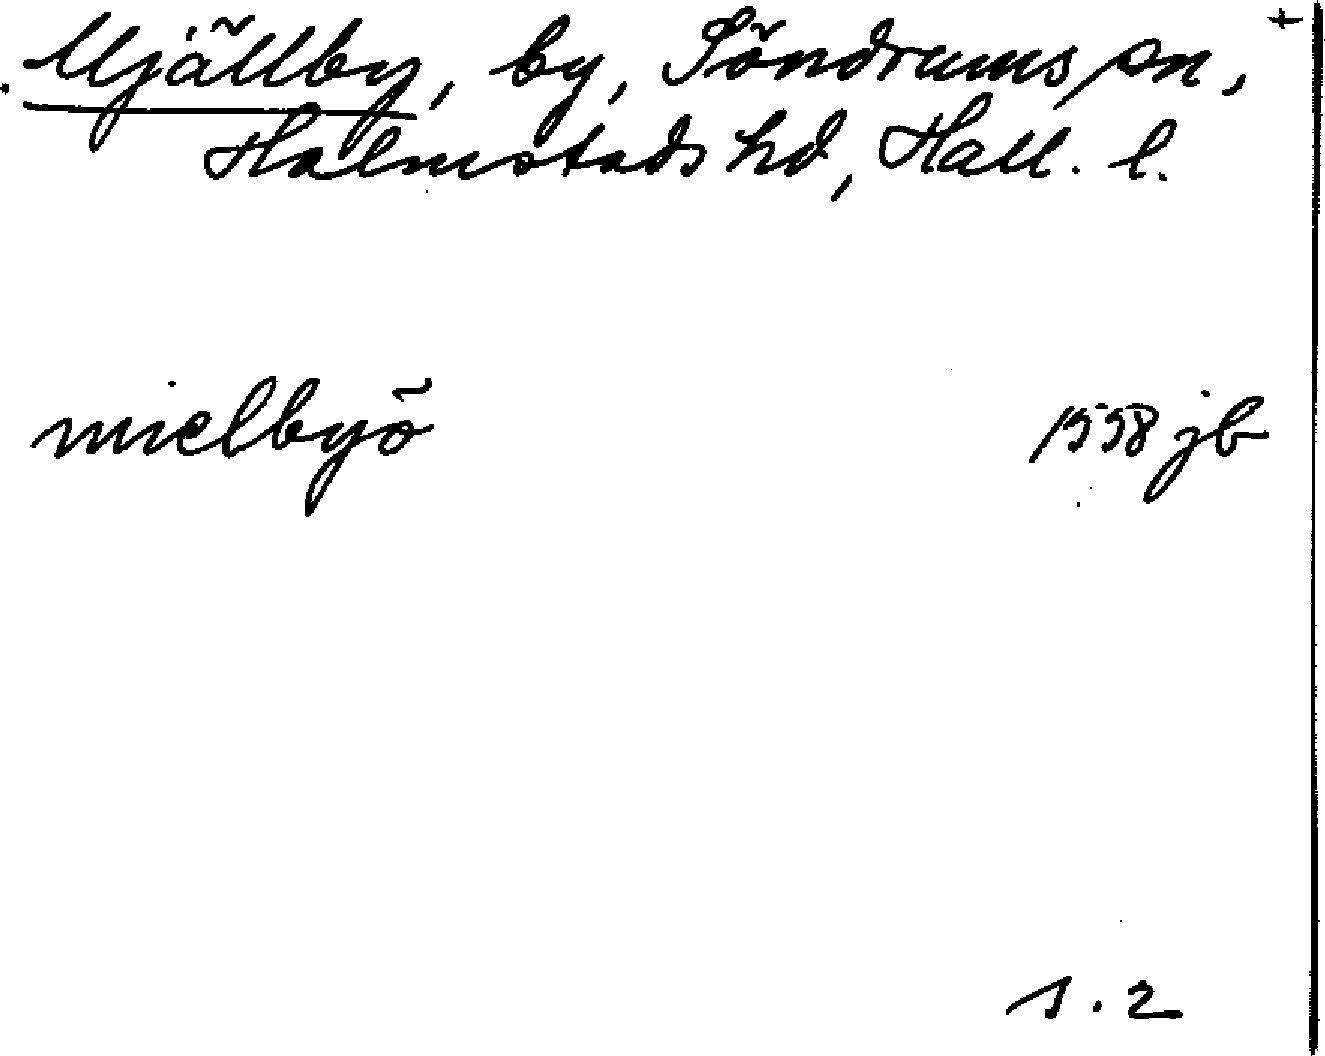 Mjällby, by, Söndrums sn,
Halmstads hd, Hall. l.
mielbyö 1558 jb
s. 2